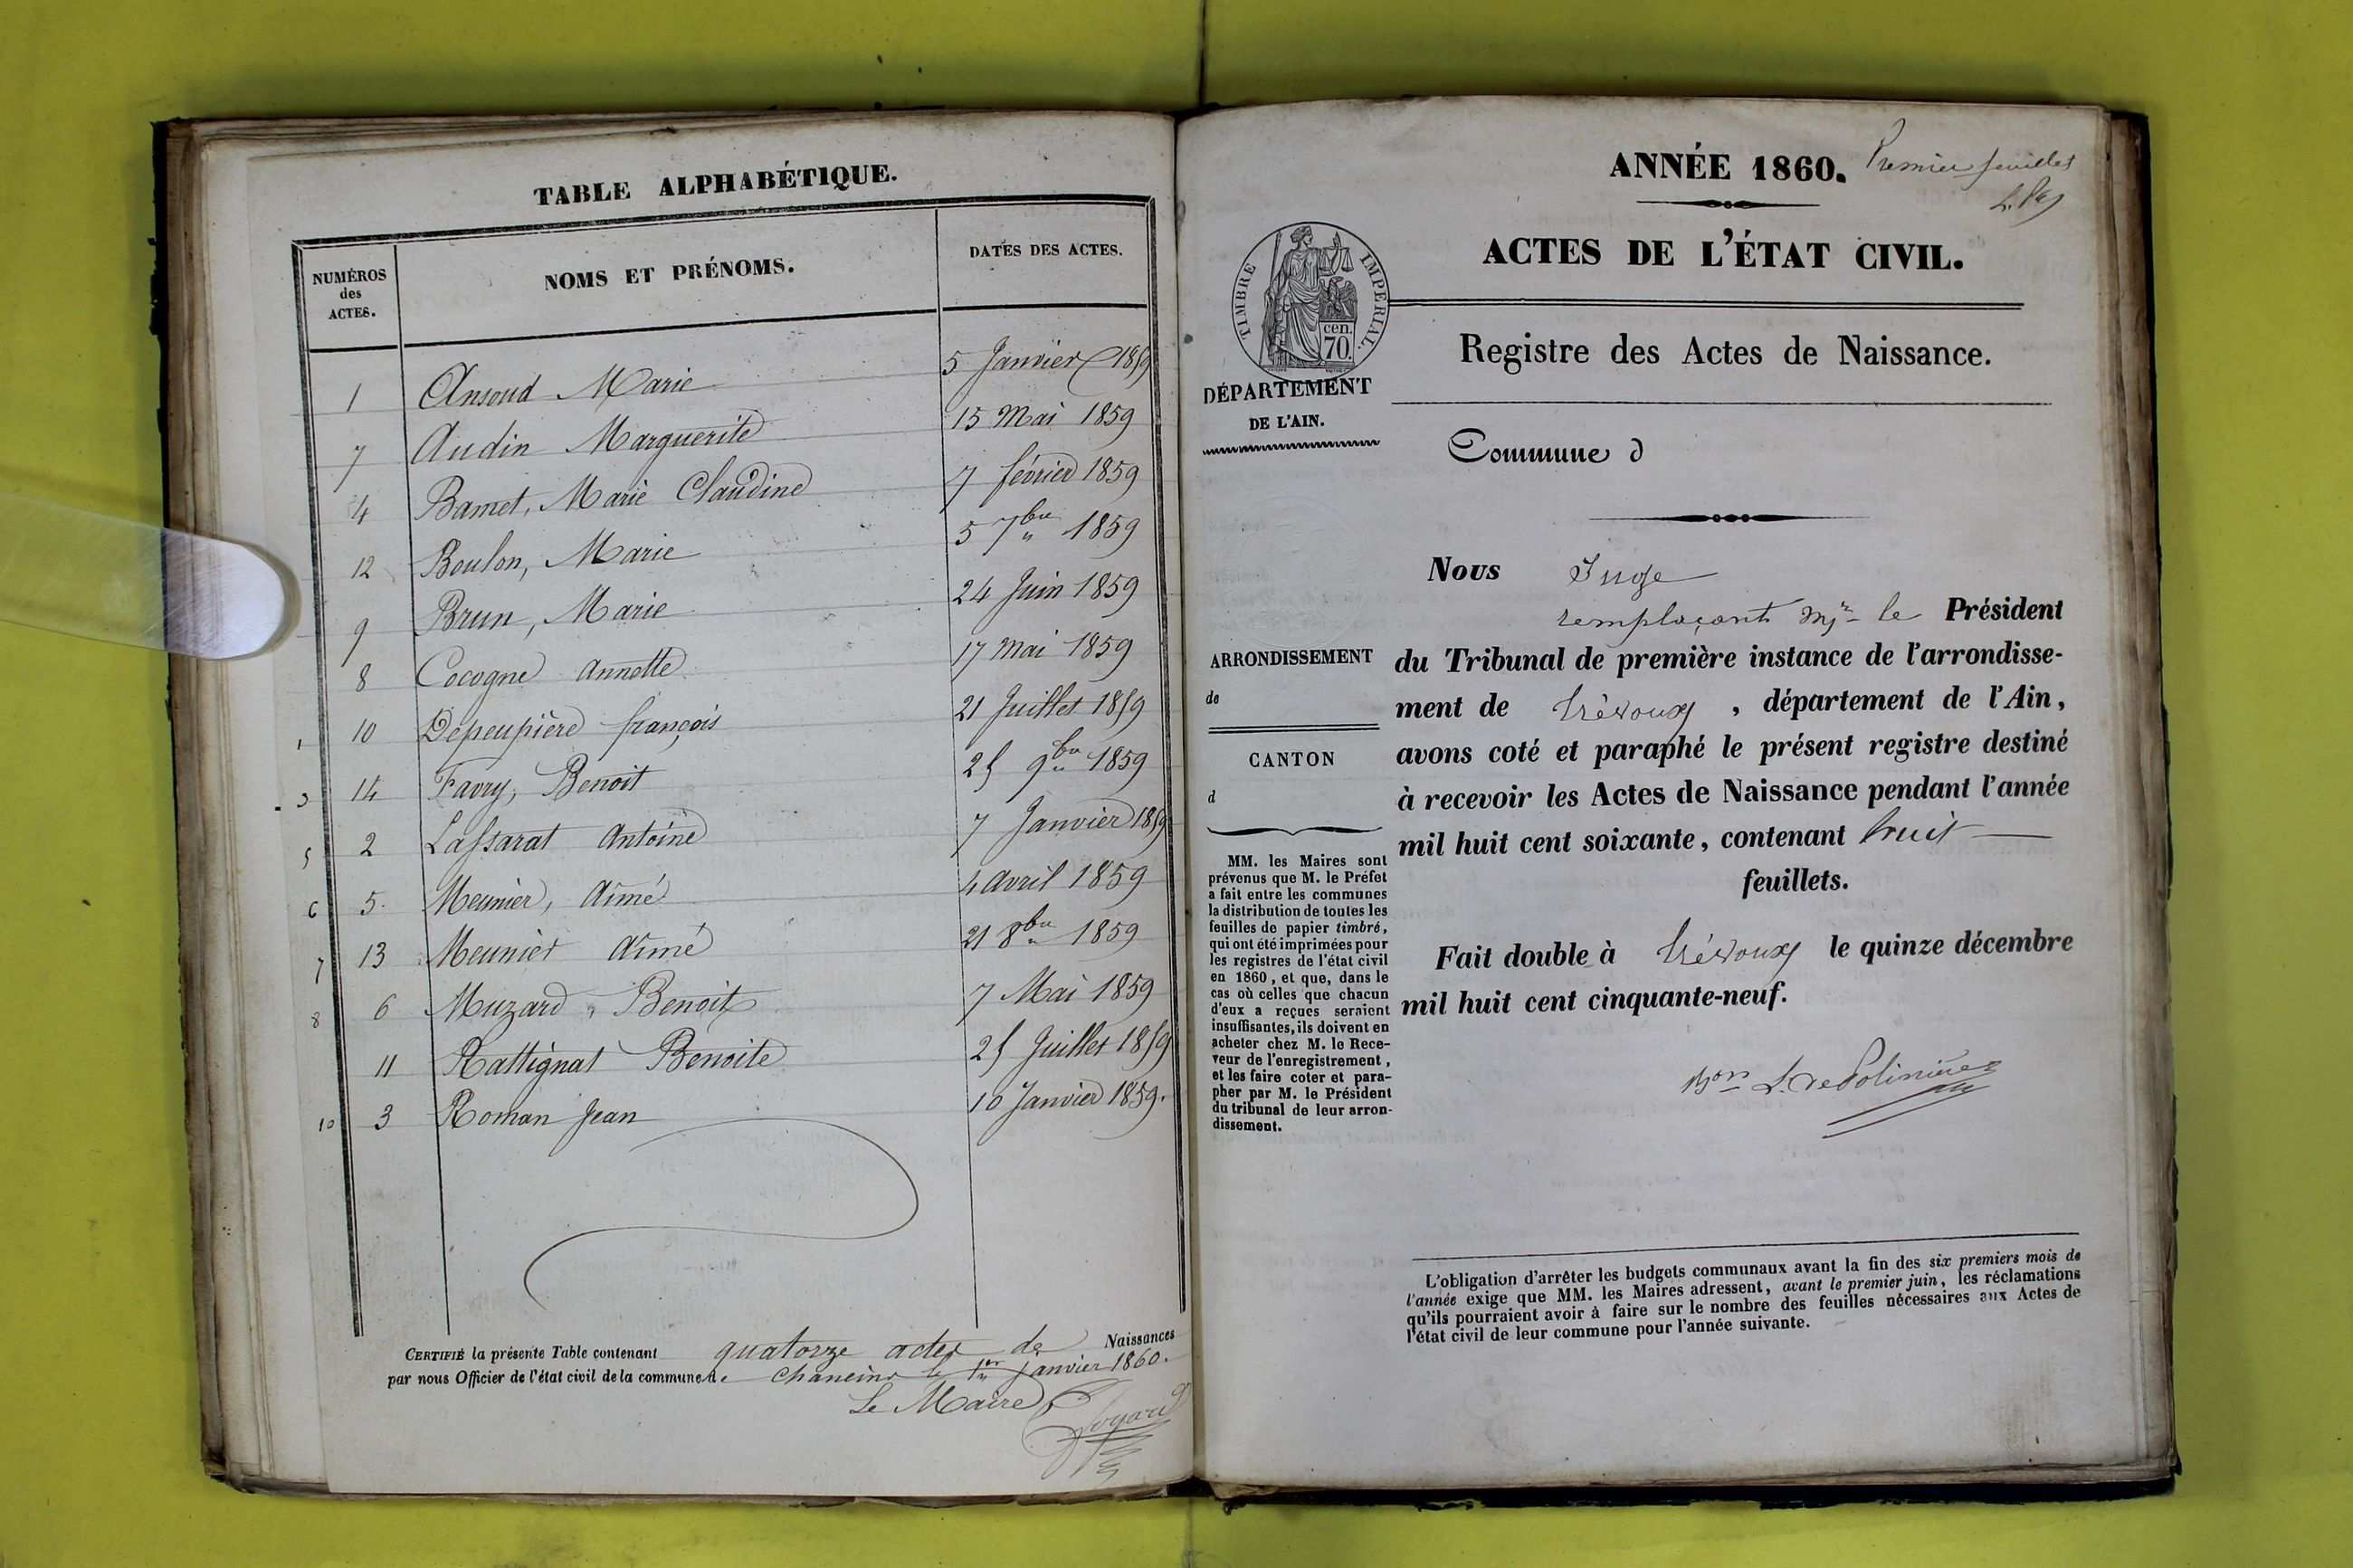 TABLE ALPHABÉTIQUE.
NUMÉROS des ACTES. NOMS ET PRÉNOMS. DATES DES ACTES.
1 Ansoud Marie 5 Janvier 1859
7 Audin Marguerite 15 Mai 1859
4 Bamet, Marie Claudine 7 février 1859
12 Boulon, Marie 5 7bre 1859
9 Brun, Marie 24 Juin 1859
8 Cocogne Annette 17 Mai 1859
1 10 Depeupière françois 21 Juillet 1859
3 14 Favry, Benoit 25 9bre 1859
5 2 Lassarat Antoine 7 Janvier 1859
6 5. Meunier, Aimé 4 Avril 1859
7 13 Meunier Aimé 21 8bre 1859
8 6 Muzard, Benoit 7 Mai 1859
11 Rattignat Benoite 25 Juillet 1859
10 3 Roman Jean 10 Janvier 1859.
CERTIFIÉ la présente Table contenant quatorze actes de Naissances
par nous Officier de l'état civil de la commune de Chaneins le 1er Janvier 1860.
Le Maire
ANNÉE 1860. Premier feuillet
ACTES DE L'ÉTAT CIVIL.
TIMBRE IMPERIAL.
cen.
70.
Registre des Actes de Naissance.
DÉPARTEMENT
DE L'AIN.
Commune d
Nous Juge
remplaçant Mr le Président
du Tribunal de première instance de l'arrondisse-
ment de Trévoux, département de l'Ain,
avons coté et paraphé le présent registre destiné
à recevoir les Actes de Naissance pendant l'année
mil huit cent soixante, contenant huit
feuillets.
Fait double à Trévoux le quinze décembre
mil huit cent cinquante-neuf.
Bon L. de Polinière
ARRONDISSEMENT
de
CANTON
d
MM. les Maires sont
prévenus que M. le Préfet
a fait entre les communes
la distribution de toutes les
feuilles de papier timbré,
qui ont été imprimées pour
les registres de l'état civil
en 1860, et que, dans le
cas où celles que chacun
d'eux a reçues seraient
insuffisantes, ils doivent en
acheter chez M. le Rece-
veur de l'enregistrement,
et les faire coter et para-
pher par M. le Président
du tribunal de leur arron-
dissement.
L'obligation d'arrêter les budgets communaux avant la fin des six premiers mois de
l'année exige que MM. les Maires adressent, avant le premier juin, les réclamations
qu'ils pourraient avoir à faire sur le nombre des feuilles nécessaires aux Actes de
l'état civil de leur commune pour l'année suivante.